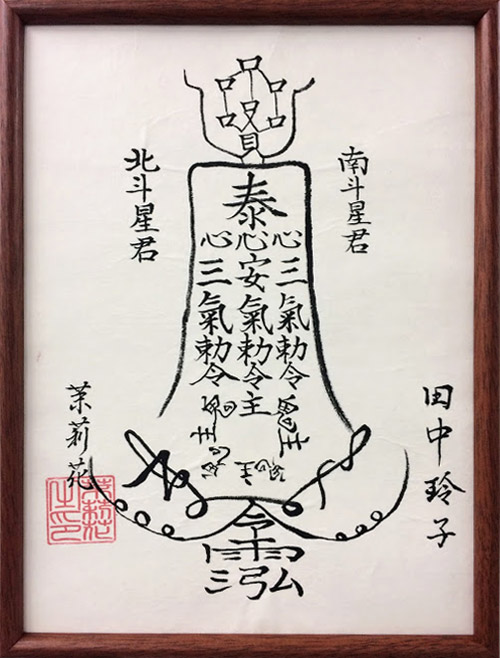 田中玲子
南斗星君
泰
心三氣勅令
心安氣勅令主
心三氣勅令
令
北斗星君
茉莉花
茉莉花之印